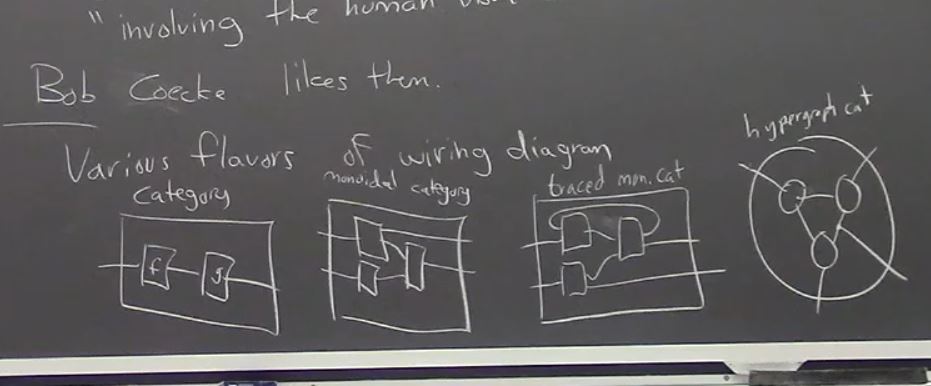 " involving the human
Bob Coecke likes them.
Various flavors of wiring diagram
category
monoidal category
traced mon. cat
hypergraph cat
f
g